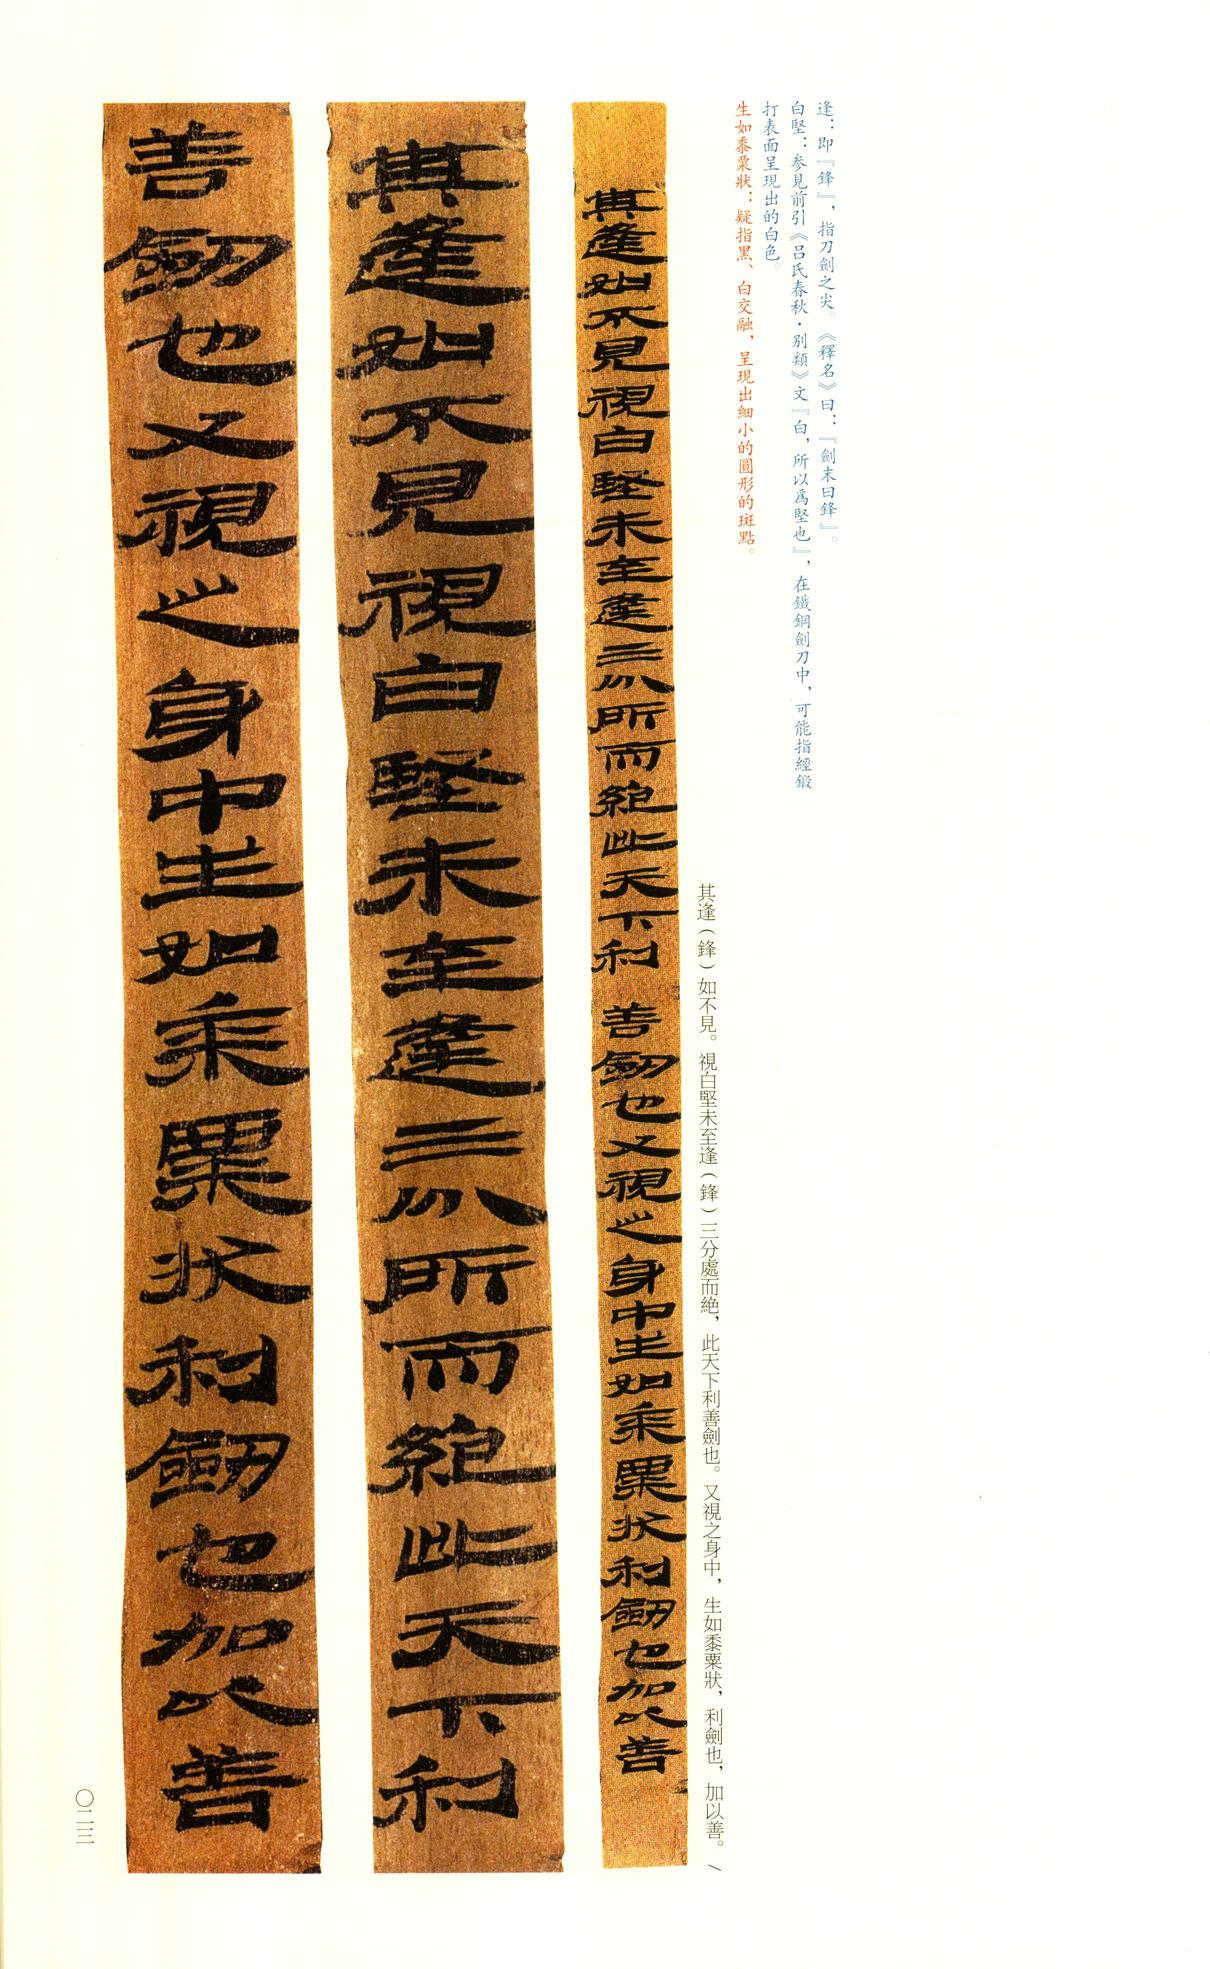 逢：即『鋒』，指刀劍之尖。《釋名》曰：『劍末曰鋒』。
白堅：參見前引《吕氏春秋·别類》文『白，所以爲堅也』，在鐵鋼劍刀中，可能指經鍛
打表面呈現出的白色。
生如黍粟狀：疑指黑、白交融，呈現出細小的圓形的斑點。
其逢（鋒）如不見。視白堅未至逢（鋒）三分處而絶，此天下利善劍也。又視之身中，生如黍粟狀，利劍也，加以善。/
其逢如不見視白堅未至逢三分所而絶此天下利善劒也又視之身中生如黍粟狀利劒也加以善
其逢如不見視白堅未至逢三分所而絶此天下利
善劒也又視之身中生如黍粟狀利劒也加以善
〇二三